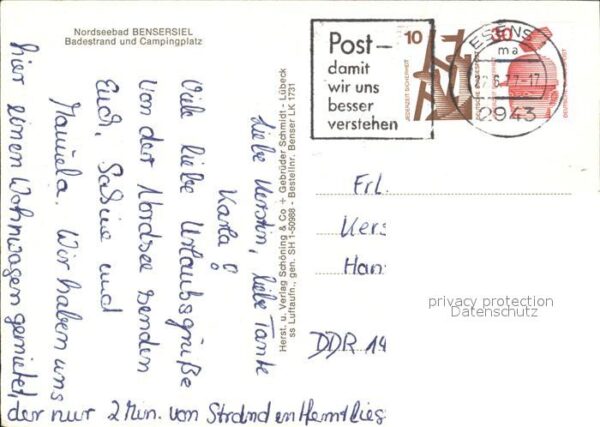 Nordseebad BENSERSIEL
Badestrand und Campingplatz
Liebe Kerstin, liebe Tante
Karla!
Viele liebe Urlaubsgrüße
von der Nordsee senden
Euch, Sabine und
Manuela. Wir haben uns
hier einen Wohnwagen gemietet,
der nur 2 Min. von Strand entfernt lieg
Herst. u. Verlag Schöning & Co + Gebrüder Schmidt - Lübeck
ss Luftaufn., gen. SH 1-50988 - Bestellnr. Benser LK 1731
Post-
damit
wir uns
besser
verstehen
10
JEDERZEIT SICHERHEIT
30
ESENS
ma
6.77-17
2943
Frl.
Kers
Han
DDR 14
privacy protection
Datenschutz